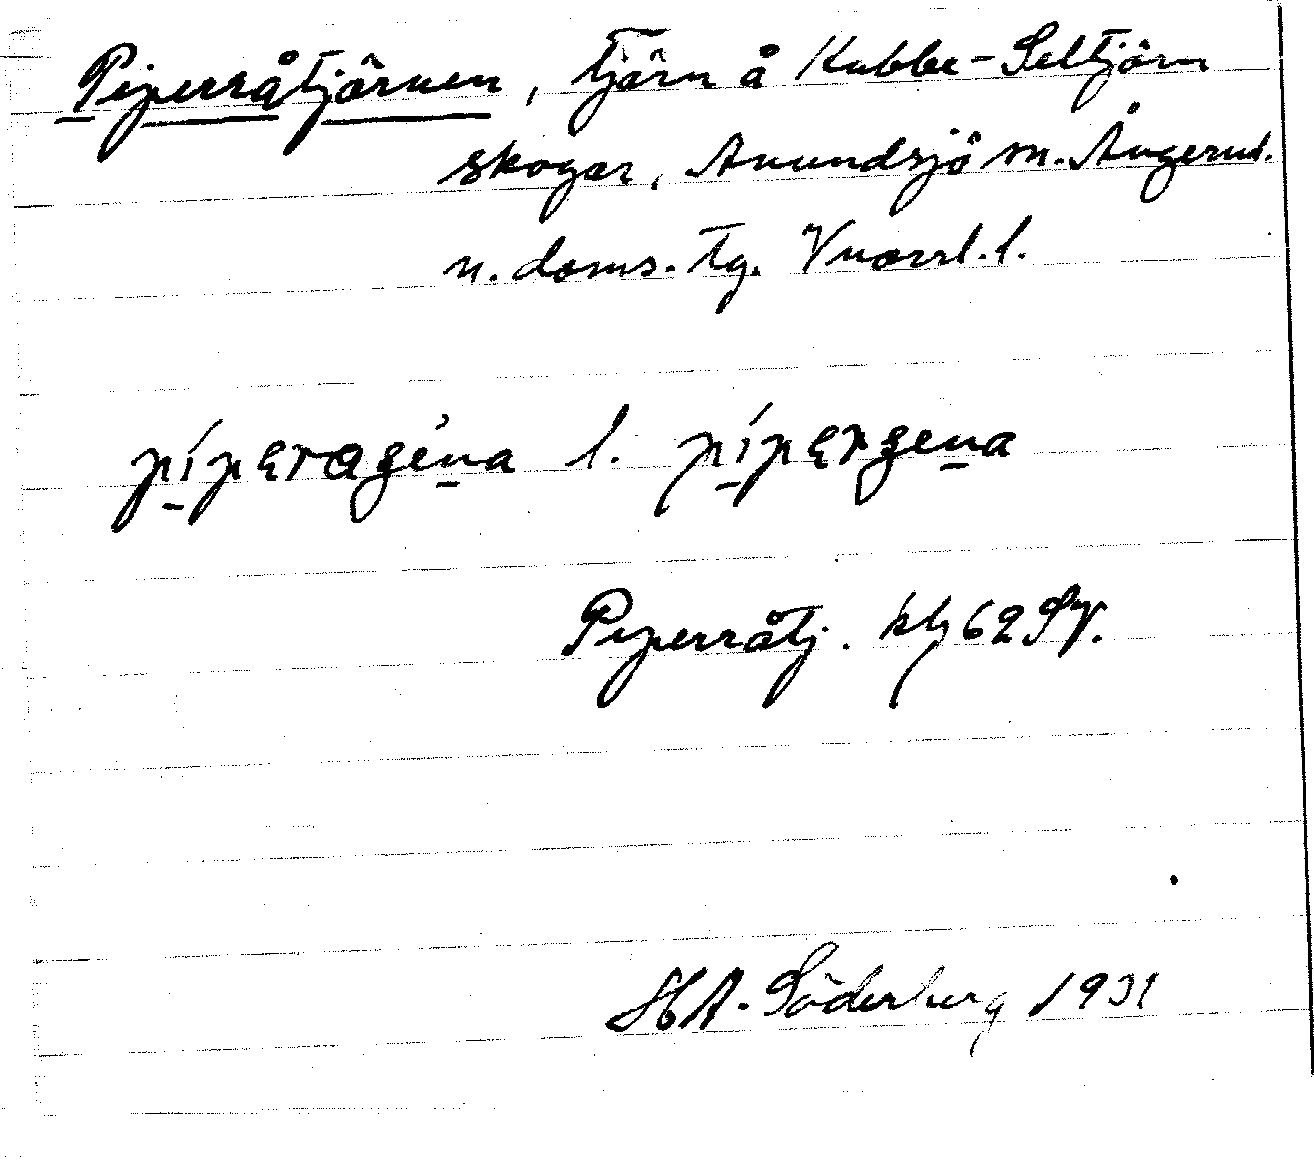 Piperråtjärnen, tjärn å Kubbe-Seltjärn
skogar, Anundsjö sn. Ångerml.
n. doms. tg.
piperagena l. pipergena
Piperråtj. kbl 62 SV.
HA. Söderberg 1931